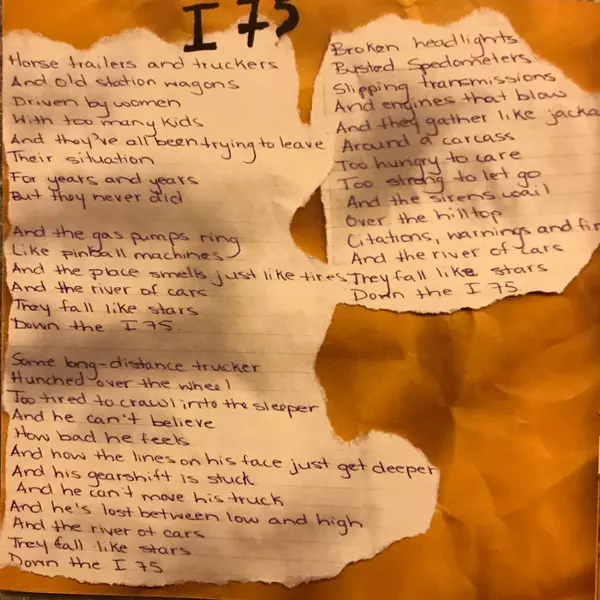 I 75
Horse trailers and truckers
And old station wagons
Driven by women
With too many kids
And they've all been trying to leave
Their situation
For years and years
But they never did
And the gas pumps ring
Like pinball machines
And the place smells just like tires
And the river of cars
They fall like stars
Down the I 75
Some long-distance trucker
Hunched over the wheel
Too tired to crawl into the sleeper
And he can't believe
How bad he feels
And how the lines on his face just get deeper
And his gearshift is stuck
And he can't move his truck
And he's lost between low and high
And the river of cars
They fall like stars
Down the I 75
Broken headlights
Busted Spedometers
Slipping transmissions
And engines that blow
And they gather like jacka
Around a carcass
Too hungry to care
Too strong to let go
And the sirens wail
Over the hilltop
Citations, warnings and fin
And the river of cars
They fall like stars
Down the I 75